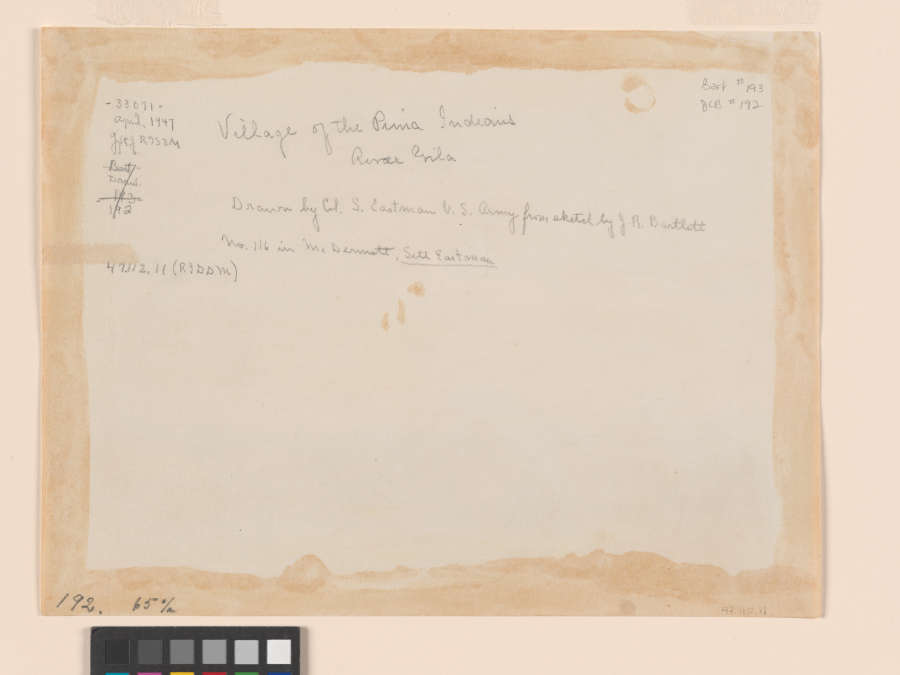 -33071-
April, 1947
gift RISDM
Bart
Draw.
193
192
Village of the Pima Indians
River Gila
Drawn by Col. S. Eastman U.S. Army from sketch by J R. Bartlett
No. 116 in McDermott, Seth Eastman
47.112.11 (RISDM)
Bart #193
JCB #192
192. 65%